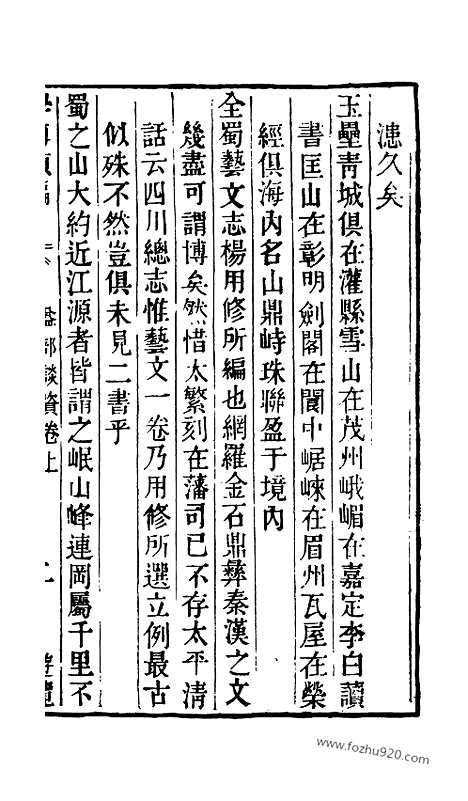 漶久矣
玉壘靑城俱在灌縣雪山在茂州峨嵋在嘉定李白讀
書匡山在彰明劍閣在閬中崌崍在眉州瓦屋在榮
經俱海內名山鼎峙珠聯盈于境內
全蜀藝文志楊用修所編也網羅金石鼎彝秦漢之文
幾盡可謂博矣然惜太繁刻在藩司已不存太平淸
話云四川總志惟藝文一卷乃用修所選立例最古
似殊不然豈俱未見二書乎
蜀之山大約近江源者皆謂之岷山峰連岡屬千里不
益部談資卷上
www.fozhu920.com